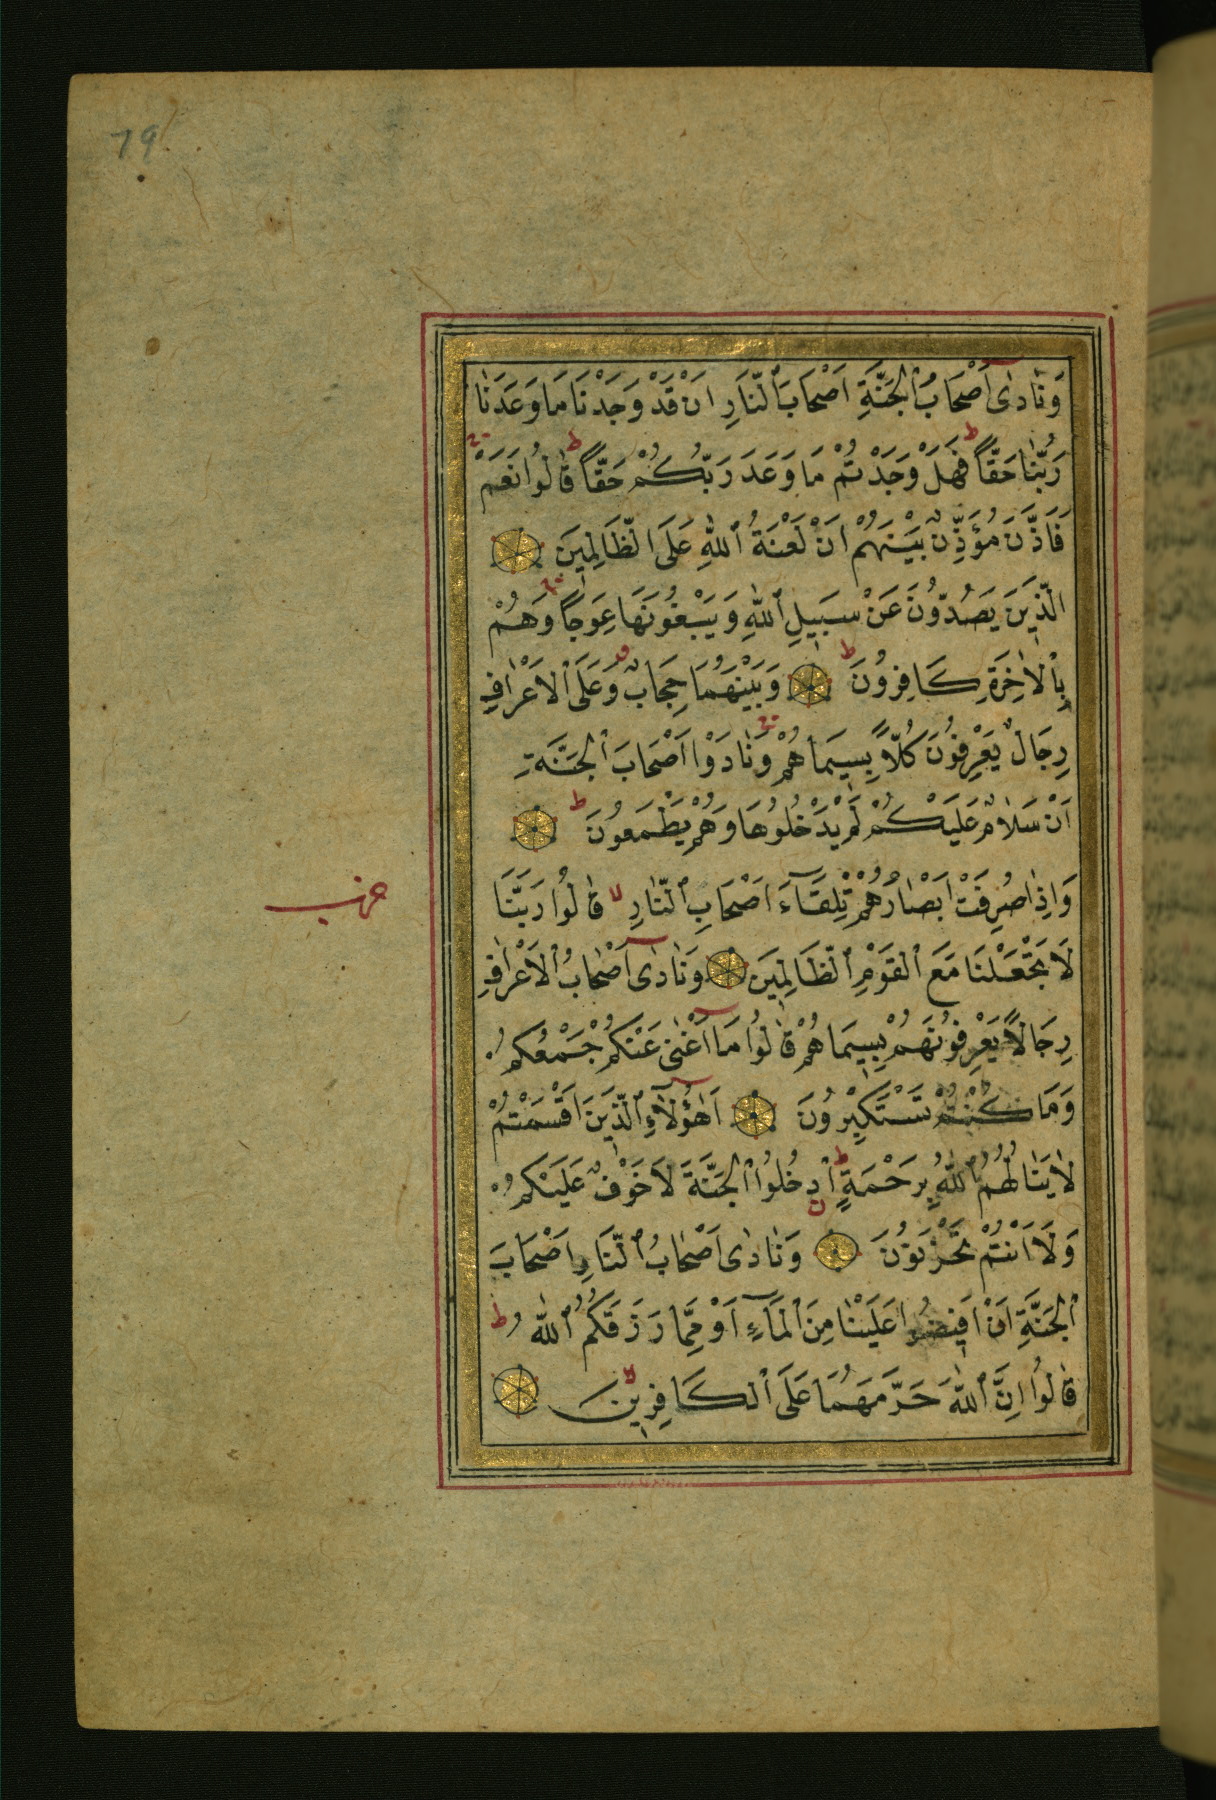 79
وَنَادٰى اَصْحَابُ ٱلْجَنَّةِ اَصْحَابَ ٱلنَّارِ اَنْ قَدْ وَجَدْنَا مَا وَعَدَنَا
رَبُّنَا حَقًّا ط فَهَلْ وَجَدْتُمْ مَا وَعَدَ رَبُّكُمْ حَقًّا ط قَالُوا نَعَمْ ج
فَاَذَّنَ مُؤَذِّنٌ بَيْنَهُمْ اَنْ لَعْنَةُ ٱللّٰهِ عَلَى ٱلظَّالِمِينَ
الَّذِينَ يَصُدُّونَ عَنْ سَبِيلِ ٱللّٰهِ وَيَبْغُونَهَا عِوَجًا ج وَهُمْ
بِٱلْاٰخِرَةِ كَافِرُونَ ط وَبَيْنَهُمَا حِجَابٌ وَعَلَى ٱلْاَعْرَافِ
رِجَالٌ يَعْرِفُونَ كُلًّا بِسِيمَاهُمْ ج وَنَادَوْا اَصْحَابَ ٱلْجَنَّةِ
اَنْ سَلَامٌ عَلَيْكُمْ لَمْ يَدْخُلُوهَا وَهُمْ يَطْمَعُونَ ط
وَاِذَا صُرِفَتْ اَبْصَارُهُمْ تِلْقَآءَ اَصْحَابِ ٱلنَّارِ لا قَالُوا رَبَّنَا
لَا تَجْعَلْنَا مَعَ ٱلْقَوْمِ ٱلظَّالِمِينَ وَنَادٰى اَصْحَابُ ٱلْاَعْرَافِ
رِجَالًا يَعْرِفُونَهُمْ بِسِيمَاهُمْ قَالُوا مَا اَغْنٰى عَنْكُمْ جَمْعُكُمْ
وَمَا كُنْتُمْ تَسْتَكْبِرُونَ اَهٰؤُلَآءِ ٱلَّذِينَ اَقْسَمْتُمْ
لَا يَنَالُهُمُ ٱللّٰهُ بِرَحْمَةٍ ط ٱدْخُلُوا ٱلْجَنَّةَ لَا خَوْفٌ عَلَيْكُمْ
وَلَا اَنْتُمْ تَحْزَنُونَ وَنَادٰى اَصْحَابُ ٱلنَّارِ اَصْحَابَ
ٱلْجَنَّةِ اَنْ اَفِيضُوا عَلَيْنَا مِنَ ٱلْمَآءِ اَوْ مِمَّا رَزَقَكُمُ ٱللّٰهُ ط
قَالُوا اِنَّ ٱللّٰهَ حَرَّمَهُمَا عَلَى ٱلْكَافِرِينَ لا
حزب